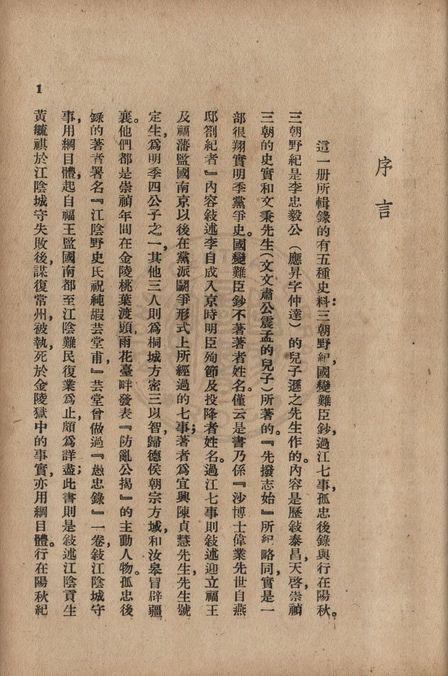 序言
這一册所輯錄的有五種史料：三朝野紀，國變難臣鈔，過江七事，孤忠後錄，與行在陽秋。
三朝野紀是李忠毅公（應昇字仲達）的兒子遜之先生作的。內容是歷敍泰昌，天啓，崇禎
三朝的史實和文秉先生（文文肅公震孟的兒子）所著的『先撥志始』所紀略同，實是一
部很翔實明季黨爭史。國變難臣鈔不著著者姓名，僅云是書乃係『沙博士偉業先世自燕
邸劄紀者』內容敍述李自成入京時明臣殉節及投降者姓名。過江七事則敍述迎立福王
及福藩監國南京以後在黨派鬭爭形式上所經過的七事；著者爲宜興陳貞慧先生，先生號
定生，爲明季四公子之一，其他三人則爲桐城方密三以智，歸德侯朝宗方域，和汝皋冒辟疆
襄。他們都是崇禎年間在金陵桃葉渡頭，雨花臺畔發表『防亂公揭』的主動人物。孤忠後
錄的著者署名『江陰野史氏祝純嘏芸堂甫』芸堂曾做過『愚忠錄』一卷，敍江陰城守
事，用綱目體，起自福王監國南都至江陰難民復業爲止，頗爲詳盡；此書則是敍述江陰貢生
黃毓祺於江陰城守失敗後，謀復常州，被執死於金陵獄中的事實，亦用綱目體。行在陽秋紀
1